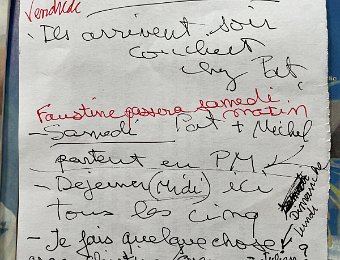 Vendredi
- Ils arrivent soir
couchent
chez Pat
Faustine passera samedi
matin
- Samedi Pat + Michel
partent en P.M.
- Déjeuner (Midi) ici
tous les cinq
Dimanche
lundi
- Je fais quelque chose